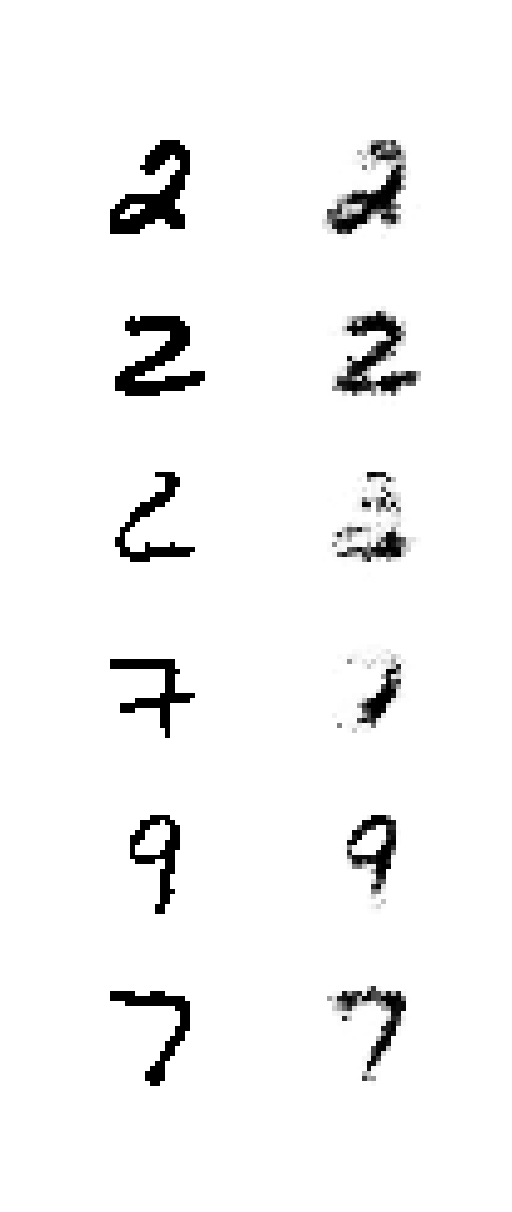 2 2
2 2
2
7
9 9
7 7